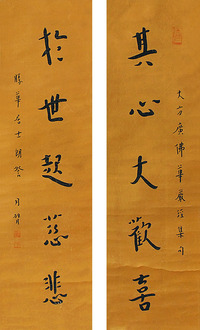 其心大歡喜
大方廣佛華嚴經集句
於世起慈悲
勝華居士
月臂